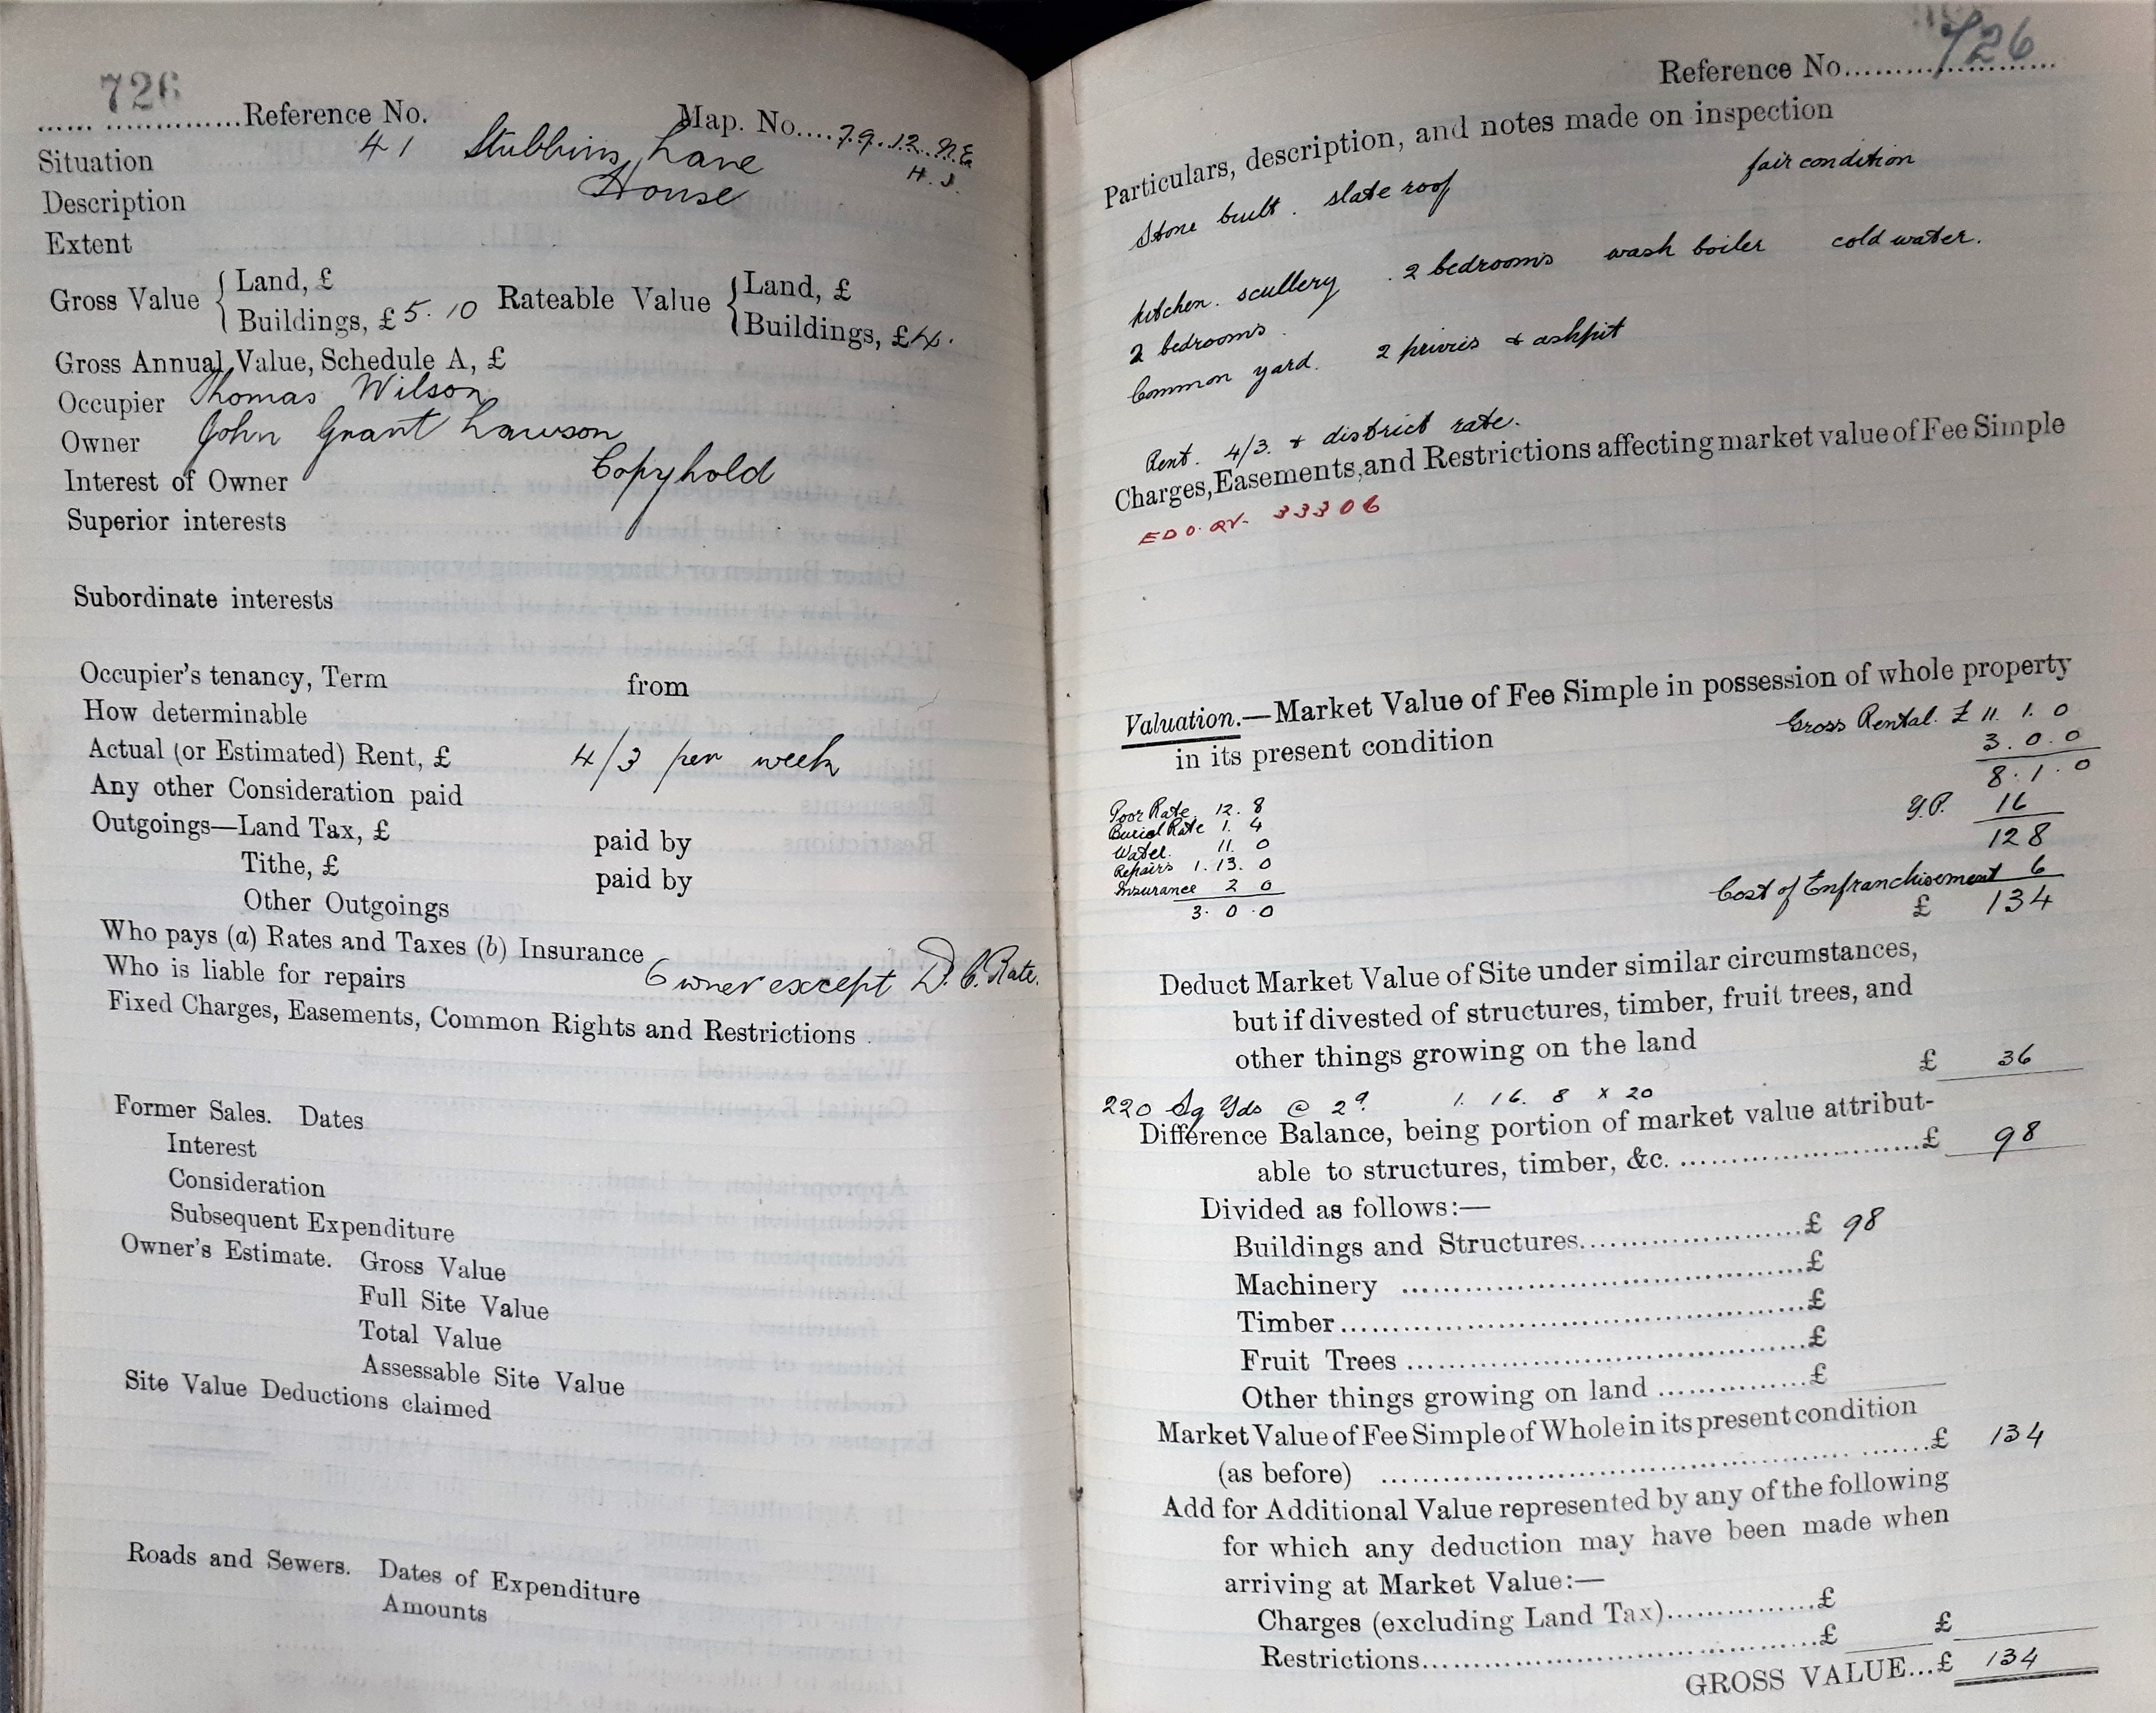 726
Reference No. Map. No.... 79.12. N.E.
Situation 41 Stubbins Lane
Description House
Extent
Gross Value { Land, £ Rateable Value { Land, £
Buildings, £ 5.10 Buildings, £ 4.
Gross Annual Value, Schedule A, £
Occupier Thomas Wilson
Owner John Grant Lawson
Interest of Owner Copyhold
Superior interests
Subordinate interests
Occupier's tenancy, Term from
How determinable
Actual (or Estimated) Rent, £ 4/3 per week
Any other Consideration paid
Outgoings—Land Tax, £ paid by
Tithe, £ paid by
Other Outgoings
Who pays (a) Rates and Taxes (b) Insurance
Who is liable for repairs Owner except D. C. Rate.
Fixed Charges, Easements, Common Rights and Restrictions
Former Sales. Dates
Interest
Consideration
Subsequent Expenditure
Owner's Estimate. Gross Value
Full Site Value
Total Value
Assessable Site Value
Site Value Deductions claimed
Roads and Sewers. Dates of Expenditure
Amounts
Reference No. 726
Particulars, description, and notes made on inspection
Stone built. slate roof fair condition
kitchen. scullery . 2 bedrooms wash boiler cold water.
2 bedrooms.
Common yard. 2 privies & ashpit
Rent. 4/3. & district rate.
Charges, Easements, and Restrictions affecting market value of Fee Simple
33306
Valuation.—Market Value of Fee Simple in possession of whole property
in its present condition Gross Rental. £ 11. 1. 0
3. 0. 0
8. 1. 0
Y.P. 16
128
Poor Rate. 12. 8
Burial Rate 1. 4
Water. 11. 0
Repairs 1. 13. 0
Insurance 2 0
3. 0. 0
Cost of Enfranchisement 6
£ 134
Deduct Market Value of Site under similar circumstances,
but if divested of structures, timber, fruit trees, and
other things growing on the land £ 36
220 Sq Yds @ 2d. 1. 16. 8 x 20
Difference Balance, being portion of market value attribut-
able to structures, timber, &c. £ 98
Divided as follows:—
Buildings and Structures £ 98
Machinery £
Timber £
Fruit Trees £
Other things growing on land £
Market Value of Fee Simple of Whole in its present condition
(as before) £ 134
Add for Additional Value represented by any of the following
for which any deduction may have been made when
arriving at Market Value:—
Charges (excluding Land Tax) £
Restrictions £ £
GROSS VALUE...£ 134